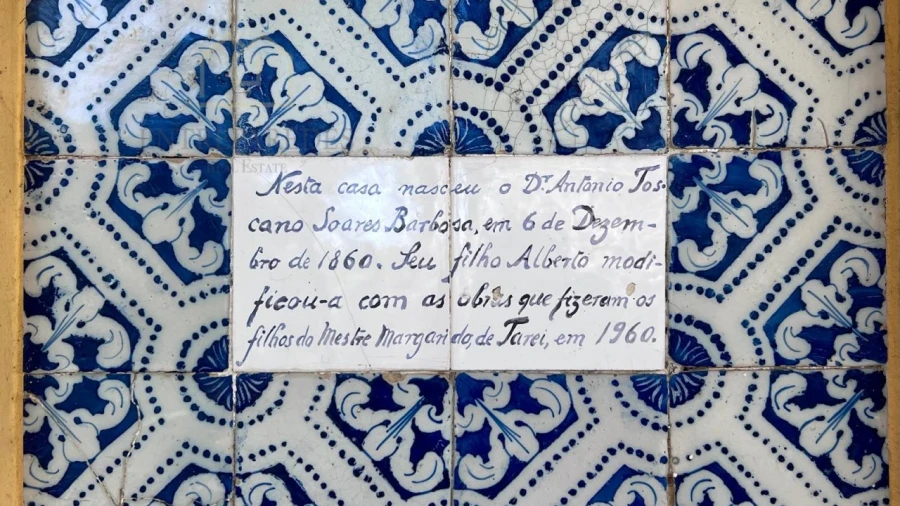 Nesta casa nasceu o Dr. Antonio Tos-
cano Soares Barbosa, em 6 de Dezem-
bro de 1860. Seu filho Alberto modi-
ficou-a com as obras que fizeram os
filhos do Mestre Margarido, de Tarei, em 1960.